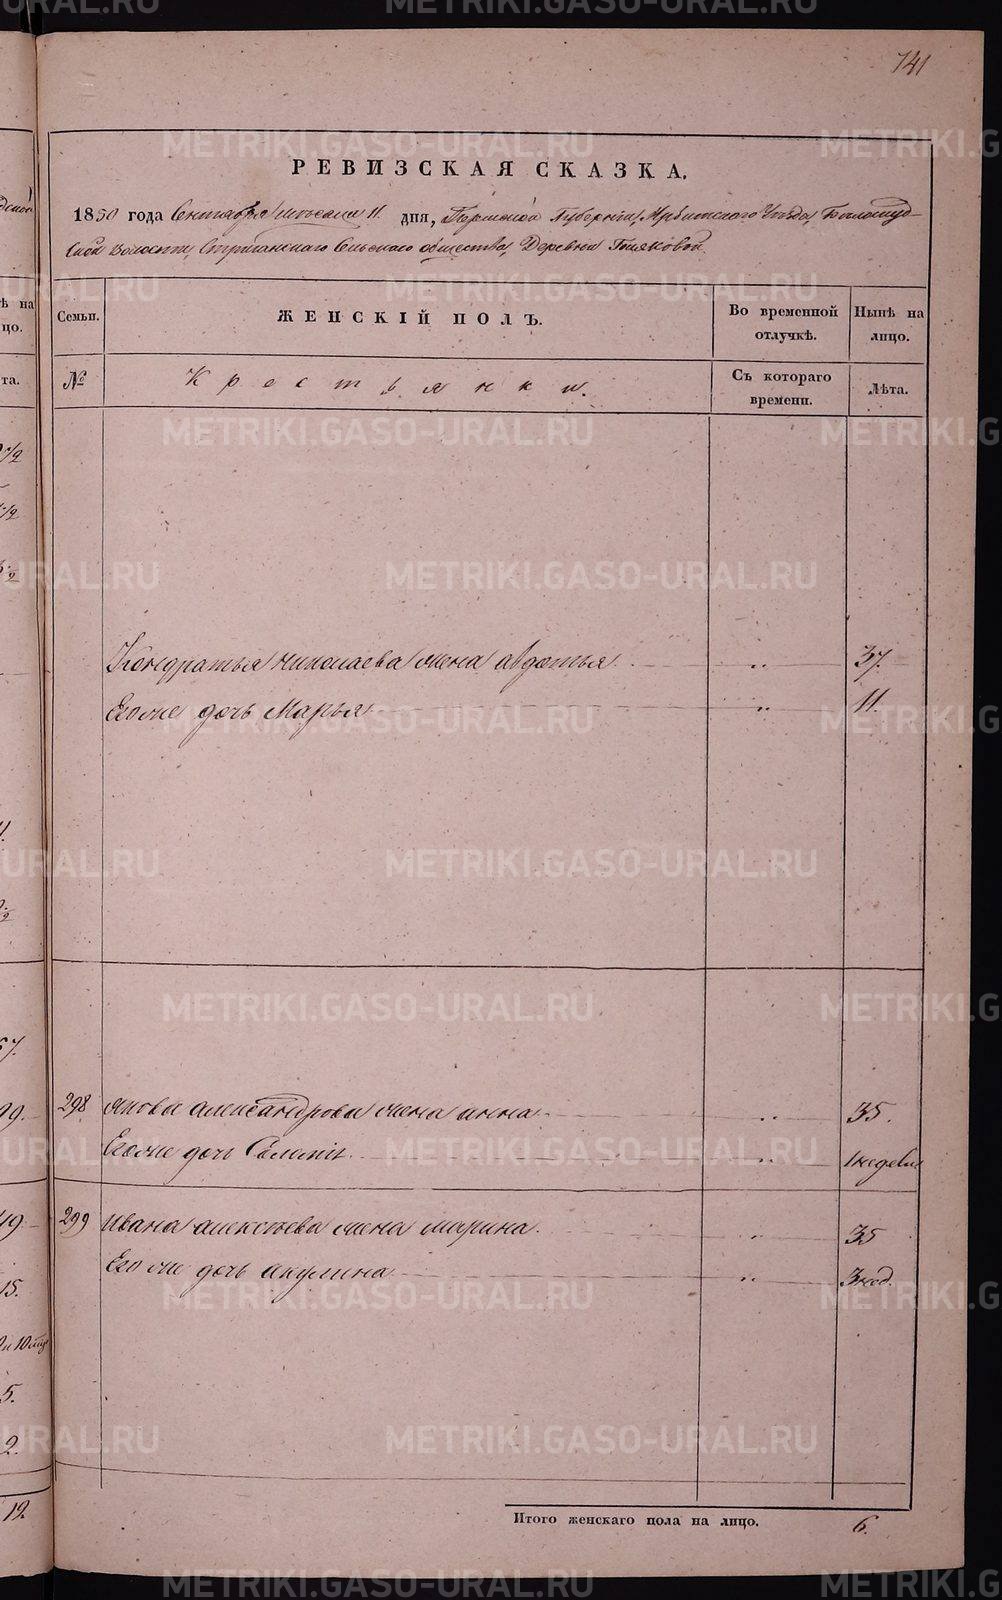 141
РЕВИЗСКАЯ СКАЗКА.
1850 года Сентября месяца 11 дня, Пермской Губернии, Ирбитскаго Уезда, Белослуд-
ской волости, Стриганскаго Сельскаго общества, Деревни
Семьи. ЖЕНСКІЙ ПОЛЪ. Во временной отлучкѣ. Нынѣ на лицо.
№ Крестьянки. Съ котораго времени. Лѣта.
Кондратья Николаева жена Авдотья " 37.
Его же дочь Марья " 11.
298 Якова Александрова жена Анна " 35.
Его же дочь " 1 недели
299 Ивана Алексѣева жена Марина " 35
Его же дочь Акулина " 3 нед.
Итого женскаго пола на лицо. 6.
METRIKI.GASO-URAL.RU